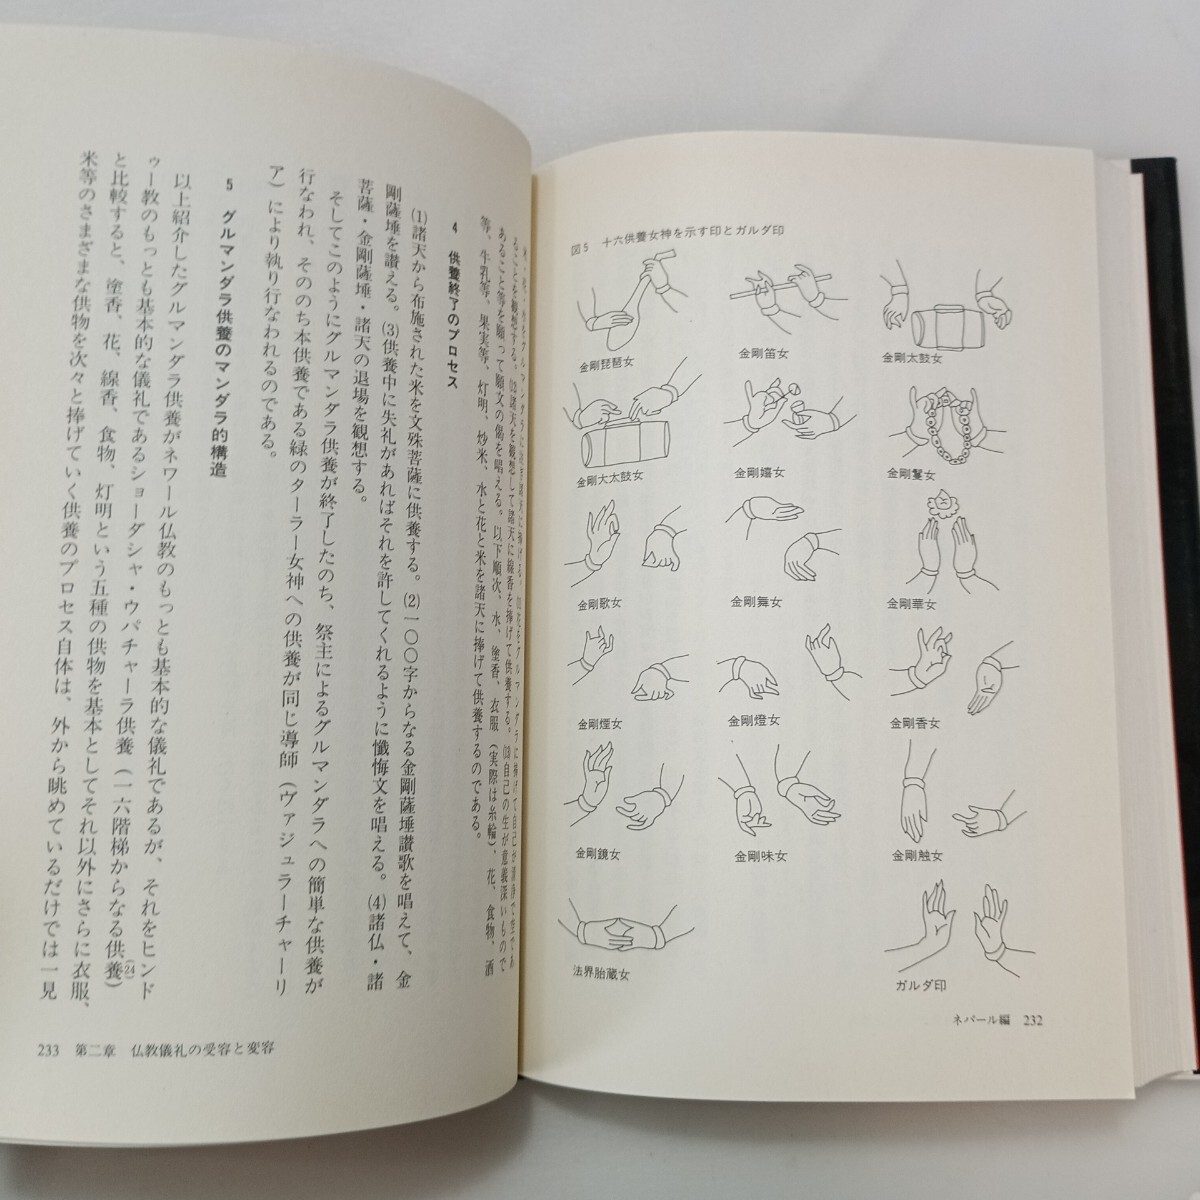 図5 十六供養女神を示す印とガルダ印
金剛琵琶女
金剛笛女
金剛太鼓女
金剛大太鼓女
金剛嬉女
金剛鬘女
金剛歌女
金剛舞女
金剛華女
金剛煙女
金剛燈女
金剛香女
金剛鏡女
金剛味女
金剛触女
法界胎蔵女
ガルダ印
ネパール編 232
グルマンダラに注ぎ諸天に捧げる。⑾花をグルマンダラに捧げて自己が清浄で空であ
ることを観想する。⑿諸天を観想して諸天に線香を捧げて供養する。⒀自己の生が意義深いもので
あること等を願って願文の偈を唱える。以下順次、水、塗香、衣服（実際は糸輪）、花、食物、酒
等、牛乳等、果実等、灯明、炒米、水と花と米を諸天に捧げて供養するのである。
4 供養終了のプロセス
⑴諸天から布施された米を文殊菩薩に供養する。⑵一〇〇字からなる金剛薩埵讃歌を唱えて、金
剛薩埵を讃える。⑶供養中に失礼があればそれを許してくれるように懺悔文を唱える。⑷諸仏・諸
菩薩・金剛薩埵・諸天の退場を観想する。
そしてこのようにグルマンダラ供養が終了したのち、祭主によるグルマンダラへの簡単な供養が
行なわれ、そののち本供養である緑のターラー女神への供養が同じ導師（ヴァジュラーチャーリ
ア）により執り行なわれるのである。
5 グルマンダラ供養のマンダラ的構造
以上紹介したグルマンダラ供養がネワール仏教のもっとも基本的な儀礼であるが、それをヒンド
ゥー教のもっとも基本的な儀礼であるショーダシャ・ウパチャーラ供養（一六階梯からなる供養）(24)
と比較すると、塗香、花、線香、食物、灯明という五種の供物を基本としてそれ以外にさらに衣服、
米等のさまざまな供物を次々と捧げていく供養のプロセス自体は、外から眺めているだけでは一見
233 第二章 仏教儀礼の受容と変容